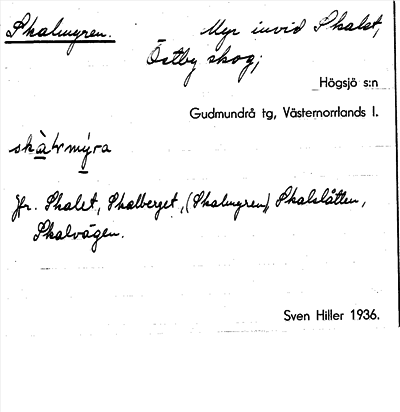 Skalmyren. Myr invid Skalet,
Östby skog;
Högsjö s:n
Gudmundrå tg, Västernorrlands l.
skàlmýra
Jfr. Skalet, Skalberget, (Skalmyren), Skalslåtten,
Skalvägen.
Sven Hiller 1936.